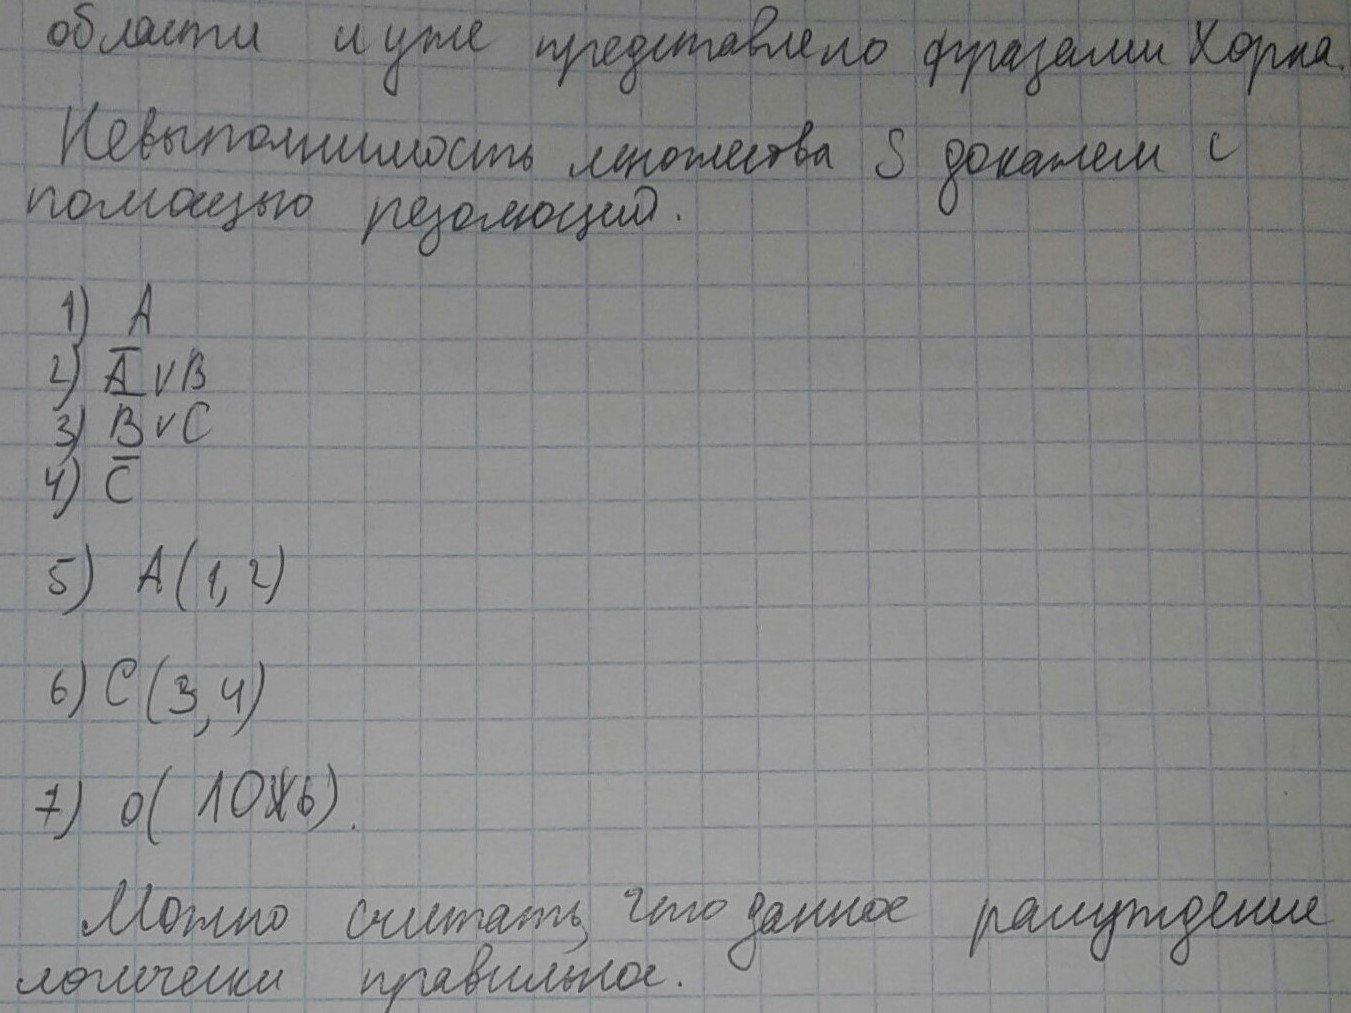 области и уже представлено фразами Хорна.
Невыполнимость множества S докажем с
помощью резолюций.
1) A
2) A̅ ∨ B
3) B ∨ C
4) C̅
5) A (1, 2)
6) C (3, 4)
7) 0 (ложь).
Можно считать, что данное рассуждение
логически правильное.